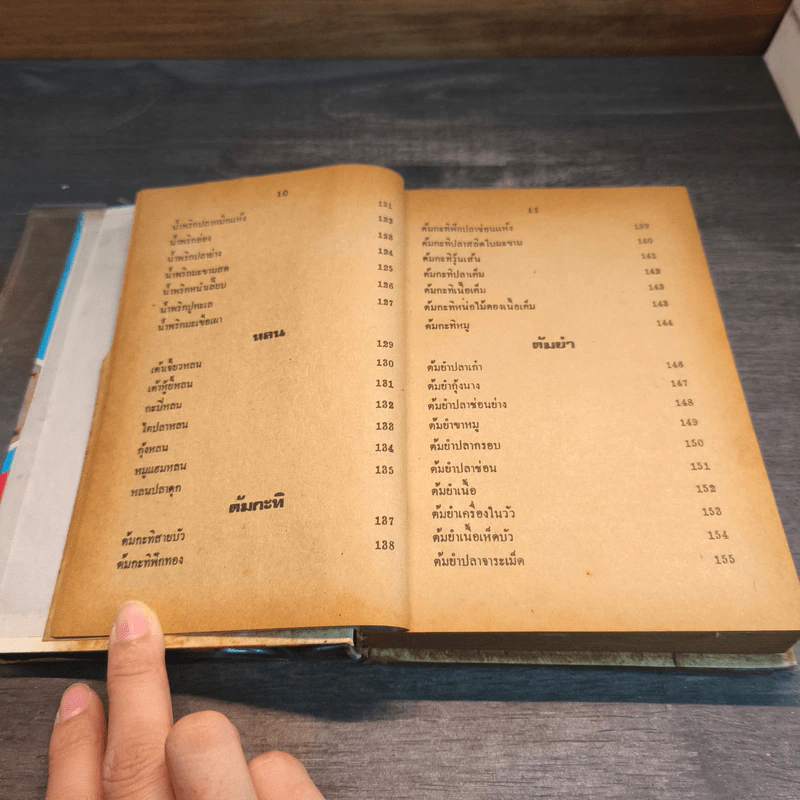 10
น้ำพริกปลาหมึกแห้ง 121
น้ำพริกอ่อง 122
น้ำพริกปลาย่าง 123
น้ำพริกมะขามสด 124
น้ำพริกหนำเลี๊ยบ 125
น้ำพริกปูทะเล 126
น้ำพริกมะเขือเผา 127
หลน
เต้าเจี้ยวหลน 129
เต้าหู้ยี้หลน 130
กะปิหลน 131
ไตปลาหลน 132
กุ้งหลน 133
หมูแฮมหลน 134
หลนปลาดุก 135
ต้มกะทิ
ต้มกะทิสายบัว 137
ต้มกะทิฟักทอง 138
11
ต้มกะทิฟักปลาช่อนแห้ง 139
ต้มกะทิปลาสลิดใบมะขาม 140
ต้มกะทิวุ้นเส้น 141
ต้มกะทิปลาเค็ม 142
ต้มกะทิเนื้อเค็ม 142
ต้มกะทิหน่อไม้ดองเนื้อเค็ม 143
ต้มกะทิหมู 144
ต้มยำ
ต้มยำปลาเก๋า 146
ต้มยำกุ้งนาง 147
ต้มยำปลาช่อนย่าง 148
ต้มยำขาหมู 149
ต้มยำปลากรอบ 150
ต้มยำปลาช่อน 151
ต้มยำเนื้อ 152
ต้มยำเครื่องในวัว 153
ต้มยำเนื้อเห็ดบัว 154
ต้มยำปลาจาระเม็ด 155